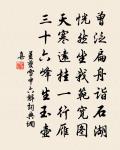 曾泛扁舟訪石湖
恍然坐我範寬圖
天寒遠挂一行雁
三十六峰生玉壺
姜夔雪中六解詞典網
集